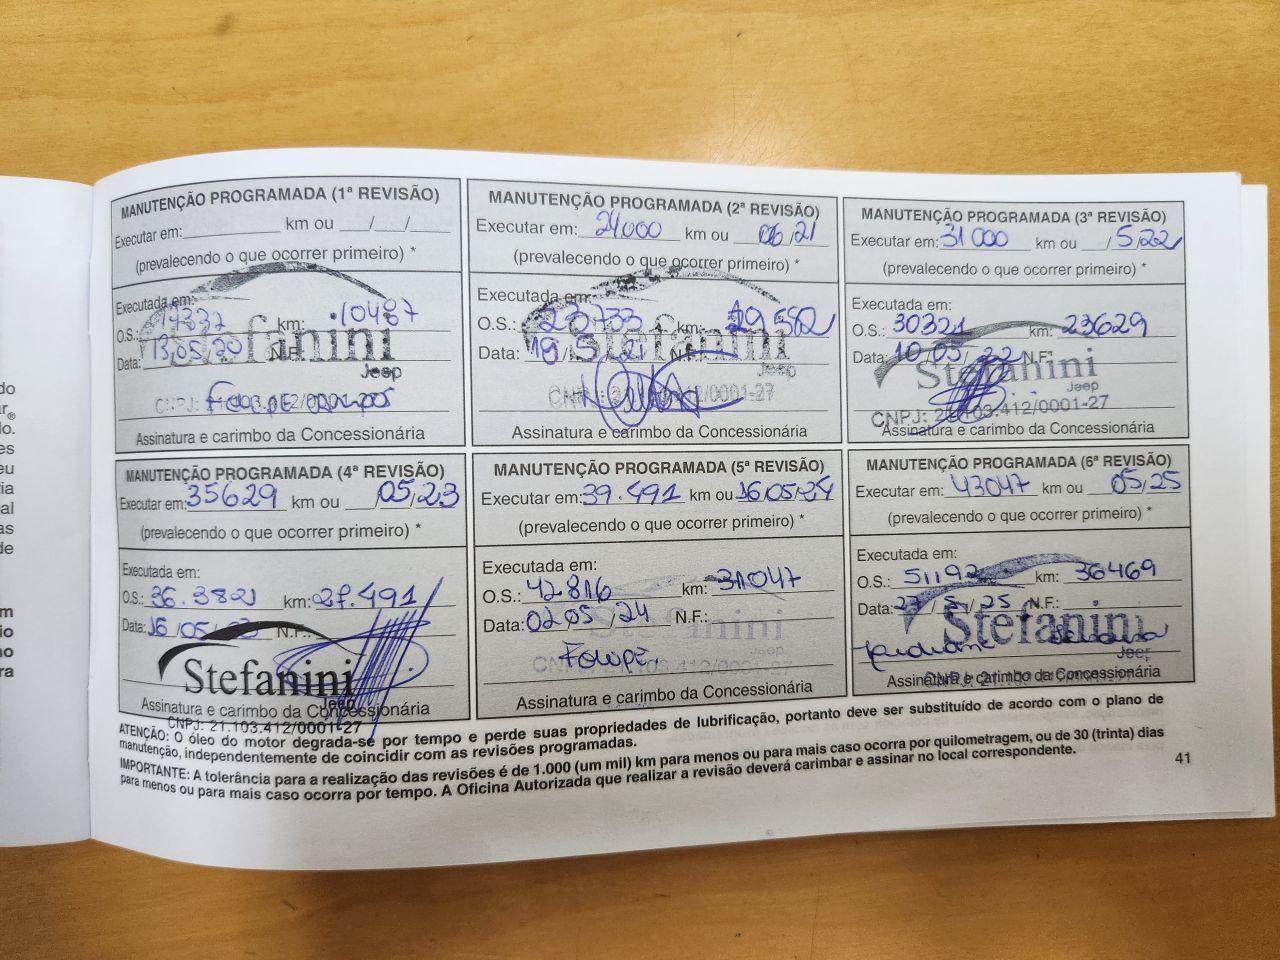 do
ar®
lo.
es
eu
ia
al
as
de
m
io
no
ra
MANUTENÇÃO PROGRAMADA (1ª REVISÃO)
Executar em: km ou / /
(prevalecendo o que ocorrer primeiro) *
Executada em:
O.S.: 17337 km: 10487
Data: 13/05/20 N.F.:
Stefanini
Jeep
Felipe Campos
CNPJ: 21.103.412/0001-27
Assinatura e carimbo da Concessionária
MANUTENÇÃO PROGRAMADA (2ª REVISÃO)
Executar em: 24000 km ou 06/21
(prevalecendo o que ocorrer primeiro) *
Executada em:
O.S.: 23733 km: 19582
Data: 19/5/21 N.F.:
Stefanini
Jeep
CNPJ: 21.103.412/0001-27
Assinatura e carimbo da Concessionária
MANUTENÇÃO PROGRAMADA (3ª REVISÃO)
Executar em: 31000 km ou /5/22
(prevalecendo o que ocorrer primeiro) *
Executada em:
O.S.: 30321 km: 23629
Data: 10/05/22 N.F.:
Stefanini
Jeep
CNPJ: 21.103.412/0001-27
Assinatura e carimbo da Concessionária
MANUTENÇÃO PROGRAMADA (4ª REVISÃO)
Executar em: 35629 km ou /05/23
(prevalecendo o que ocorrer primeiro) *
Executada em:
O.S.: 36.382 km: 27.491
Data: 16/05/23 N.F.:
Stefanini
Jeep
Assinatura e carimbo da Concessionária
CNPJ: 21.103.412/0001-27
MANUTENÇÃO PROGRAMADA (5ª REVISÃO)
Executar em: 39.491 km ou 16/05/24
(prevalecendo o que ocorrer primeiro) *
Executada em:
O.S.: 42816 km: 31047
Data: 02/05/24 N.F.:
Stefanini
Felipe
CNPJ: 21.103.412/0001-27
Assinatura e carimbo da Concessionária
MANUTENÇÃO PROGRAMADA (6ª REVISÃO)
Executar em: 43047 km ou 05/25
(prevalecendo o que ocorrer primeiro) *
Executada em:
O.S.: 51192 km: 36469
Data: 27/5/25 N.F.:
Stefanini
Jeep
Assinatura e carimbo da Concessionária
ATENÇÃO: O óleo do motor degrada-se por tempo e perde suas propriedades de lubrificação, portanto deve ser substituído de acordo com o plano de
manutenção, independentemente de coincidir com as revisões programadas.
IMPORTANTE: A tolerância para a realização das revisões é de 1.000 (um mil) km para menos ou para mais caso ocorra por quilometragem, ou de 30 (trinta) dias
para menos ou para mais caso ocorra por tempo. A Oficina Autorizada que realizar a revisão deverá carimbar e assinar no local correspondente.
41